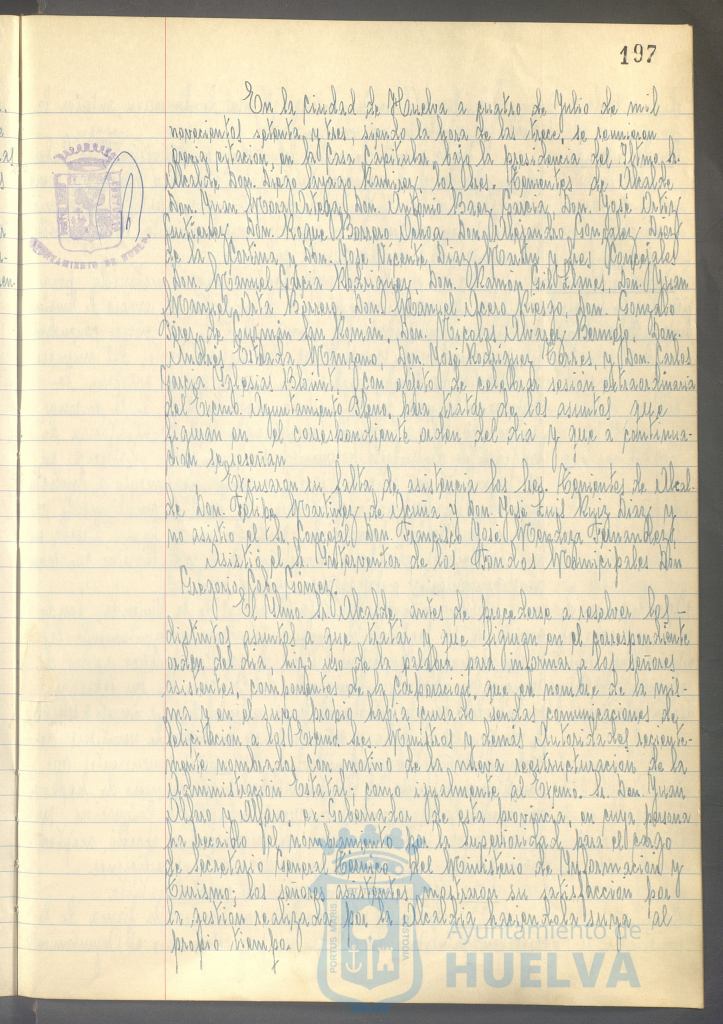 197
En la ciudad de Huelva a cuatro de Julio de mil
novecientos setenta y tres, siendo la hora de las trece se reunieron
previa citación, en la Casa Capitular bajo la presidencia del Iltmo. Sr.
Alcalde Don. Diego Ramírez, los Sres. Tenientes de Alcalde
Don. Juan Mora Don. Antonio Baez García Don. José Ortiz
Gutierrez Don. Roque Barrero Ochoa Don Alejandro González Díaz
de la Cortina y Don. José Vicente Díaz y los Concejales
Don. Manuel García Rodríguez, Don. Ramón Gil Llanes, Don. Juan
Manuel Orta Borrero, Don. Manuel Acero Riesgo, Don. Gonzalo
Pérez de Guzmán San Román, Don. Nicolás Alvarez Bermejo, Don.
Andrés Estrada Manzano, Don José Rodríguez Torres, y Don. Carlos
García Iglesias Blount, con objeto de celebrar sesión extraordinaria
del Excmo. Ayuntamiento Pleno, para tratar de los asuntos que
figuran en el correspondiente orden del día y que a continua-
ción se reseñan.
Excusaron su falta de asistencia los Sres. Tenientes de Alcal-
de Don. Felipe Martínez de Acuña y Don José Luis Ruiz Díaz y
no asistió el Sr. Concejal Don. Francisco José Mendoza Fernandez.
Asistió el Sr. Interventor de los Fondos Municipales Don
Gregorio Coba Gómez.
El Iltmo. Sr. Alcalde antes de procederse a resolver los -
distintos asuntos a que tratar y que figuran en el correspondiente
orden del día, hizo uso de la palabra para informar a los señores
asistentes, componentes de la Corporación, que en nombre de la mis-
ma y en el suyo propio había cursado sendas comunicaciones de
felicitación a los Excmo. Sres. Ministros y demás Autoridades reciente-
mente nombrados con motivo de la nueva reestructuración de la
Administración Estatal; como igualmente al Excmo. Sr. Don. Juan
Alfaro y Alfaro, ex-Gobernador de esta provincia, en cuya persona
ha recaído el nombramiento por la superioridad para el cargo
de Secretario General Técnico del Ministerio de Información y
Turismo; los señores asistentes mostraron su satisfacción por
la gestión realizada por la Alcaldía haciéndola suya al
propio tiempo.
AYUNTAMIENTO DE HUELVA
PORTUS MARIS
CUSTODIA
Ayuntamiento de
HUELVA